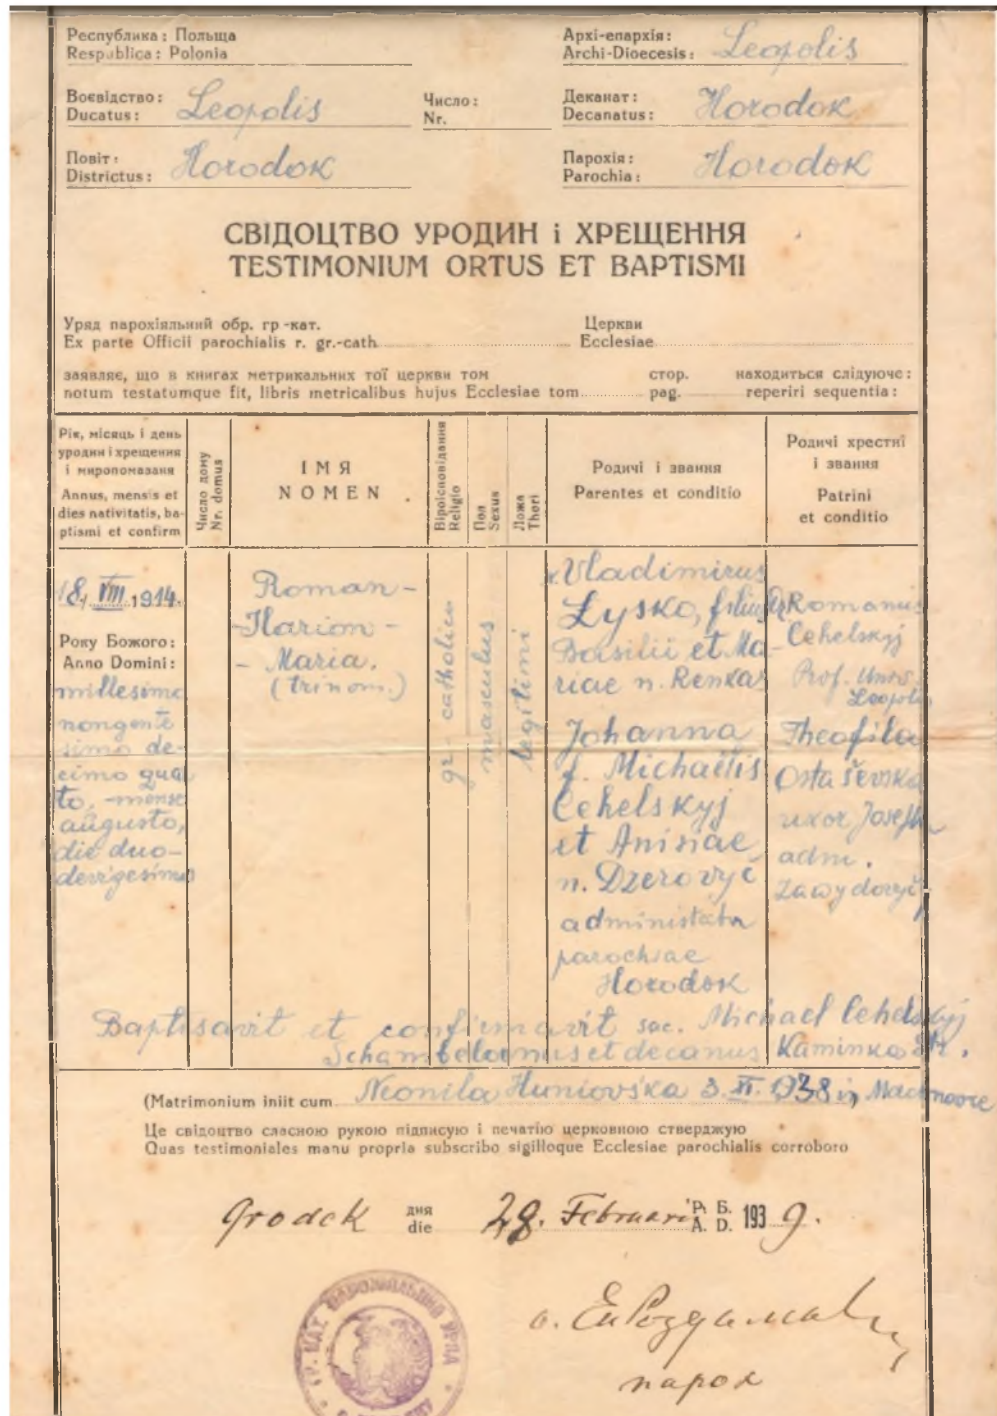 Республика: Польща
Respublica: Polonia
Архі-епархія:
Archi-Dioecesis: Leopolis
Воєвідство:
Ducatus: Leopolis
Число:
Nr.
Деканат:
Decanatus: Horodok
Повіт:
Districtus: Horodok
Парохія:
Parochia: Horodok
СВІДОЦТВО УРОДИН і ХРЕЩЕННЯ
TESTIMONIUM ORTUS ET BAPTISMI
Уряд парохіяльний обр. гр-кат.
Ex parte Officii parochialis r. gr.-cath.
Церкви
Ecclesiae
заявляє, що в книгах метрикальних тої церкви том стор. находиться слідуюче:
notum testatumque fit, libris metricalibus hujus Ecclesiae tom pag. reperiri sequentia:
Рік, місяць і день
уродин і хрещення
і миропомазаня
Annus, mensis et
dies nativitatis, ba-
ptismi et confirm
Число дому
Nr. domus
ІМЯ
NOMEN
Віроісповідання
Religio
Пол
Sexus
Ложа
Thori
Родичі і звання
Parentes et conditio
Родичі хрестні
і звання
Patrini
et conditio
18. VIII. 1914.
Року Божого:
Anno Domini:
millesimo
nongente
simo de-
cimo quar
to, -mense
augusto,
die duo-
devigesimo
Roman-
-Ilarion-
- Maria.
(trinom.)
gr- catholica
masculus
legitimi
Vladimirus
Łysko, filius
Basilii et Ma
riae n. Renkas
Johanna
f. Michaelis
Cehelskyj
et Anisiae
n. Dzerovyč
administrator
parochiae
Horodok
Dr Romanus
Cehelskyj
Prof. Univs.
Leopolis
Theofila
Ostaševska
uxor Joseph
adm.
Zawydovyč
Baptisavit et confirmavit sac. Michael Cehelskyj
et decanus Kaminka Str.
(Matrimonium iniit cum Neonila Huniovśka 3. XI. 1938 in
Це свідоцтво сласною рукою підписую і печатію церковною стверджую
Quas testimoniales manu propria subscribo sigilloque Ecclesiae parochialis corroboro
Grodek дня
die 28. Februari Р. Б.
A. D. 1939.
о. Ев
парох
ГР. КАТ. ПАРОХІЯЛЬНИЙ УРЯД